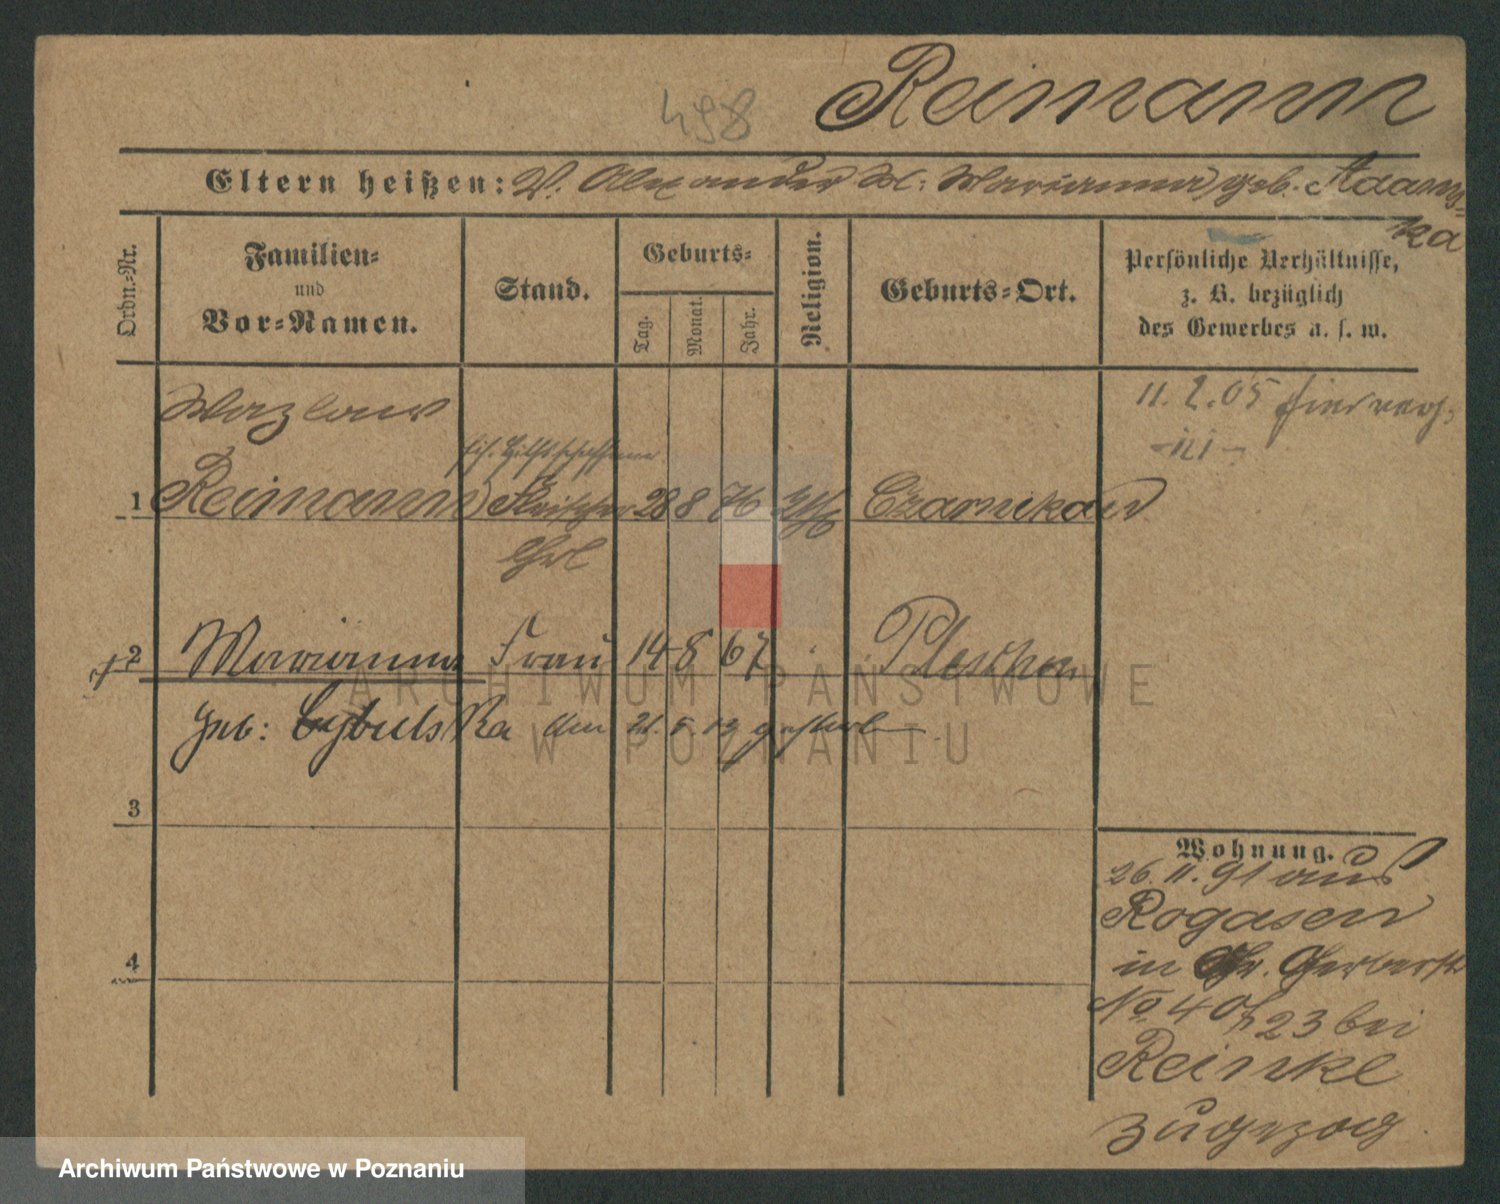 498
Reimann
Eltern heißen: V. Alexander M: Marianna, geb. Adams=
ka
Ordn.=Nr.
Familien=
und
Vor=Namen.
Stand.
Geburts=
Tag.
Monat.
Jahr.
Religion.
Geburts=Ort.
Persönliche Verhältnisse,
z. B. bezüglich
des Gewerbes u. s. w.
11. 2. 05
Wazlaw
1 Reimann 28 8 76 Czarnikau
2 Marianna Frau 14 8 67 Pleschen
geb: Cybulska am 21. 5. 13 gestorben
3
4
Wohnung.
26. 11. 91 aus
Rogasen
in Gr. Gerberstr
No 40/23 bei
Reinke
zugezog
ARCHIWUM PAŃSTWOWE
W POZNANIU
Archiwum Państwowe w Poznaniu